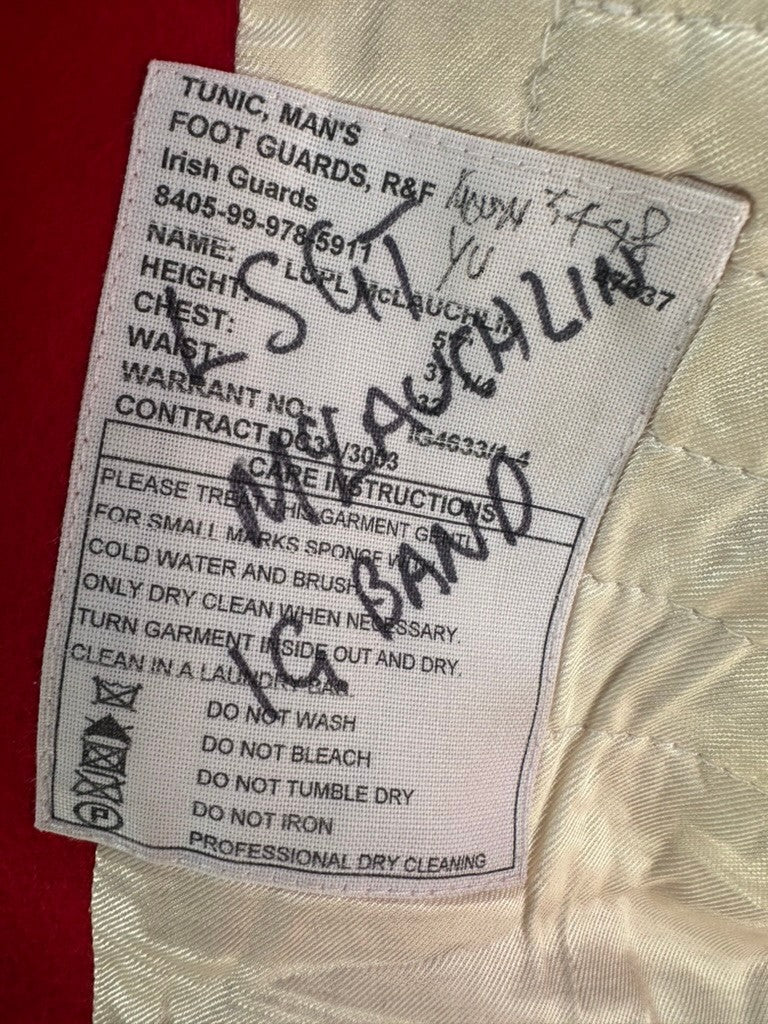 TUNIC, MAN'S
FOOT GUARDS, R&F
Irish Guards
8405-99-978-5911
YU
NAME: LCPL McLAUCHLIN
HEIGHT:
CHEST:
WAIST:
WARRANT NO: IG4633/
CONTRACT: /3003
LSGT
MCLAUCHLIN
IG BAND
CARE INSTRUCTIONS
PLEASE TREAT THIS GARMENT GENTLY
FOR SMALL MARKS SPONGE WITH
COLD WATER AND BRUSH
ONLY DRY CLEAN WHEN NECESSARY.
TURN GARMENT INSIDE OUT AND DRY.
CLEAN IN A LAUNDRY BAG.
DO NOT WASH
DO NOT BLEACH
DO NOT TUMBLE DRY
DO NOT IRON
P
PROFESSIONAL DRY CLEANING